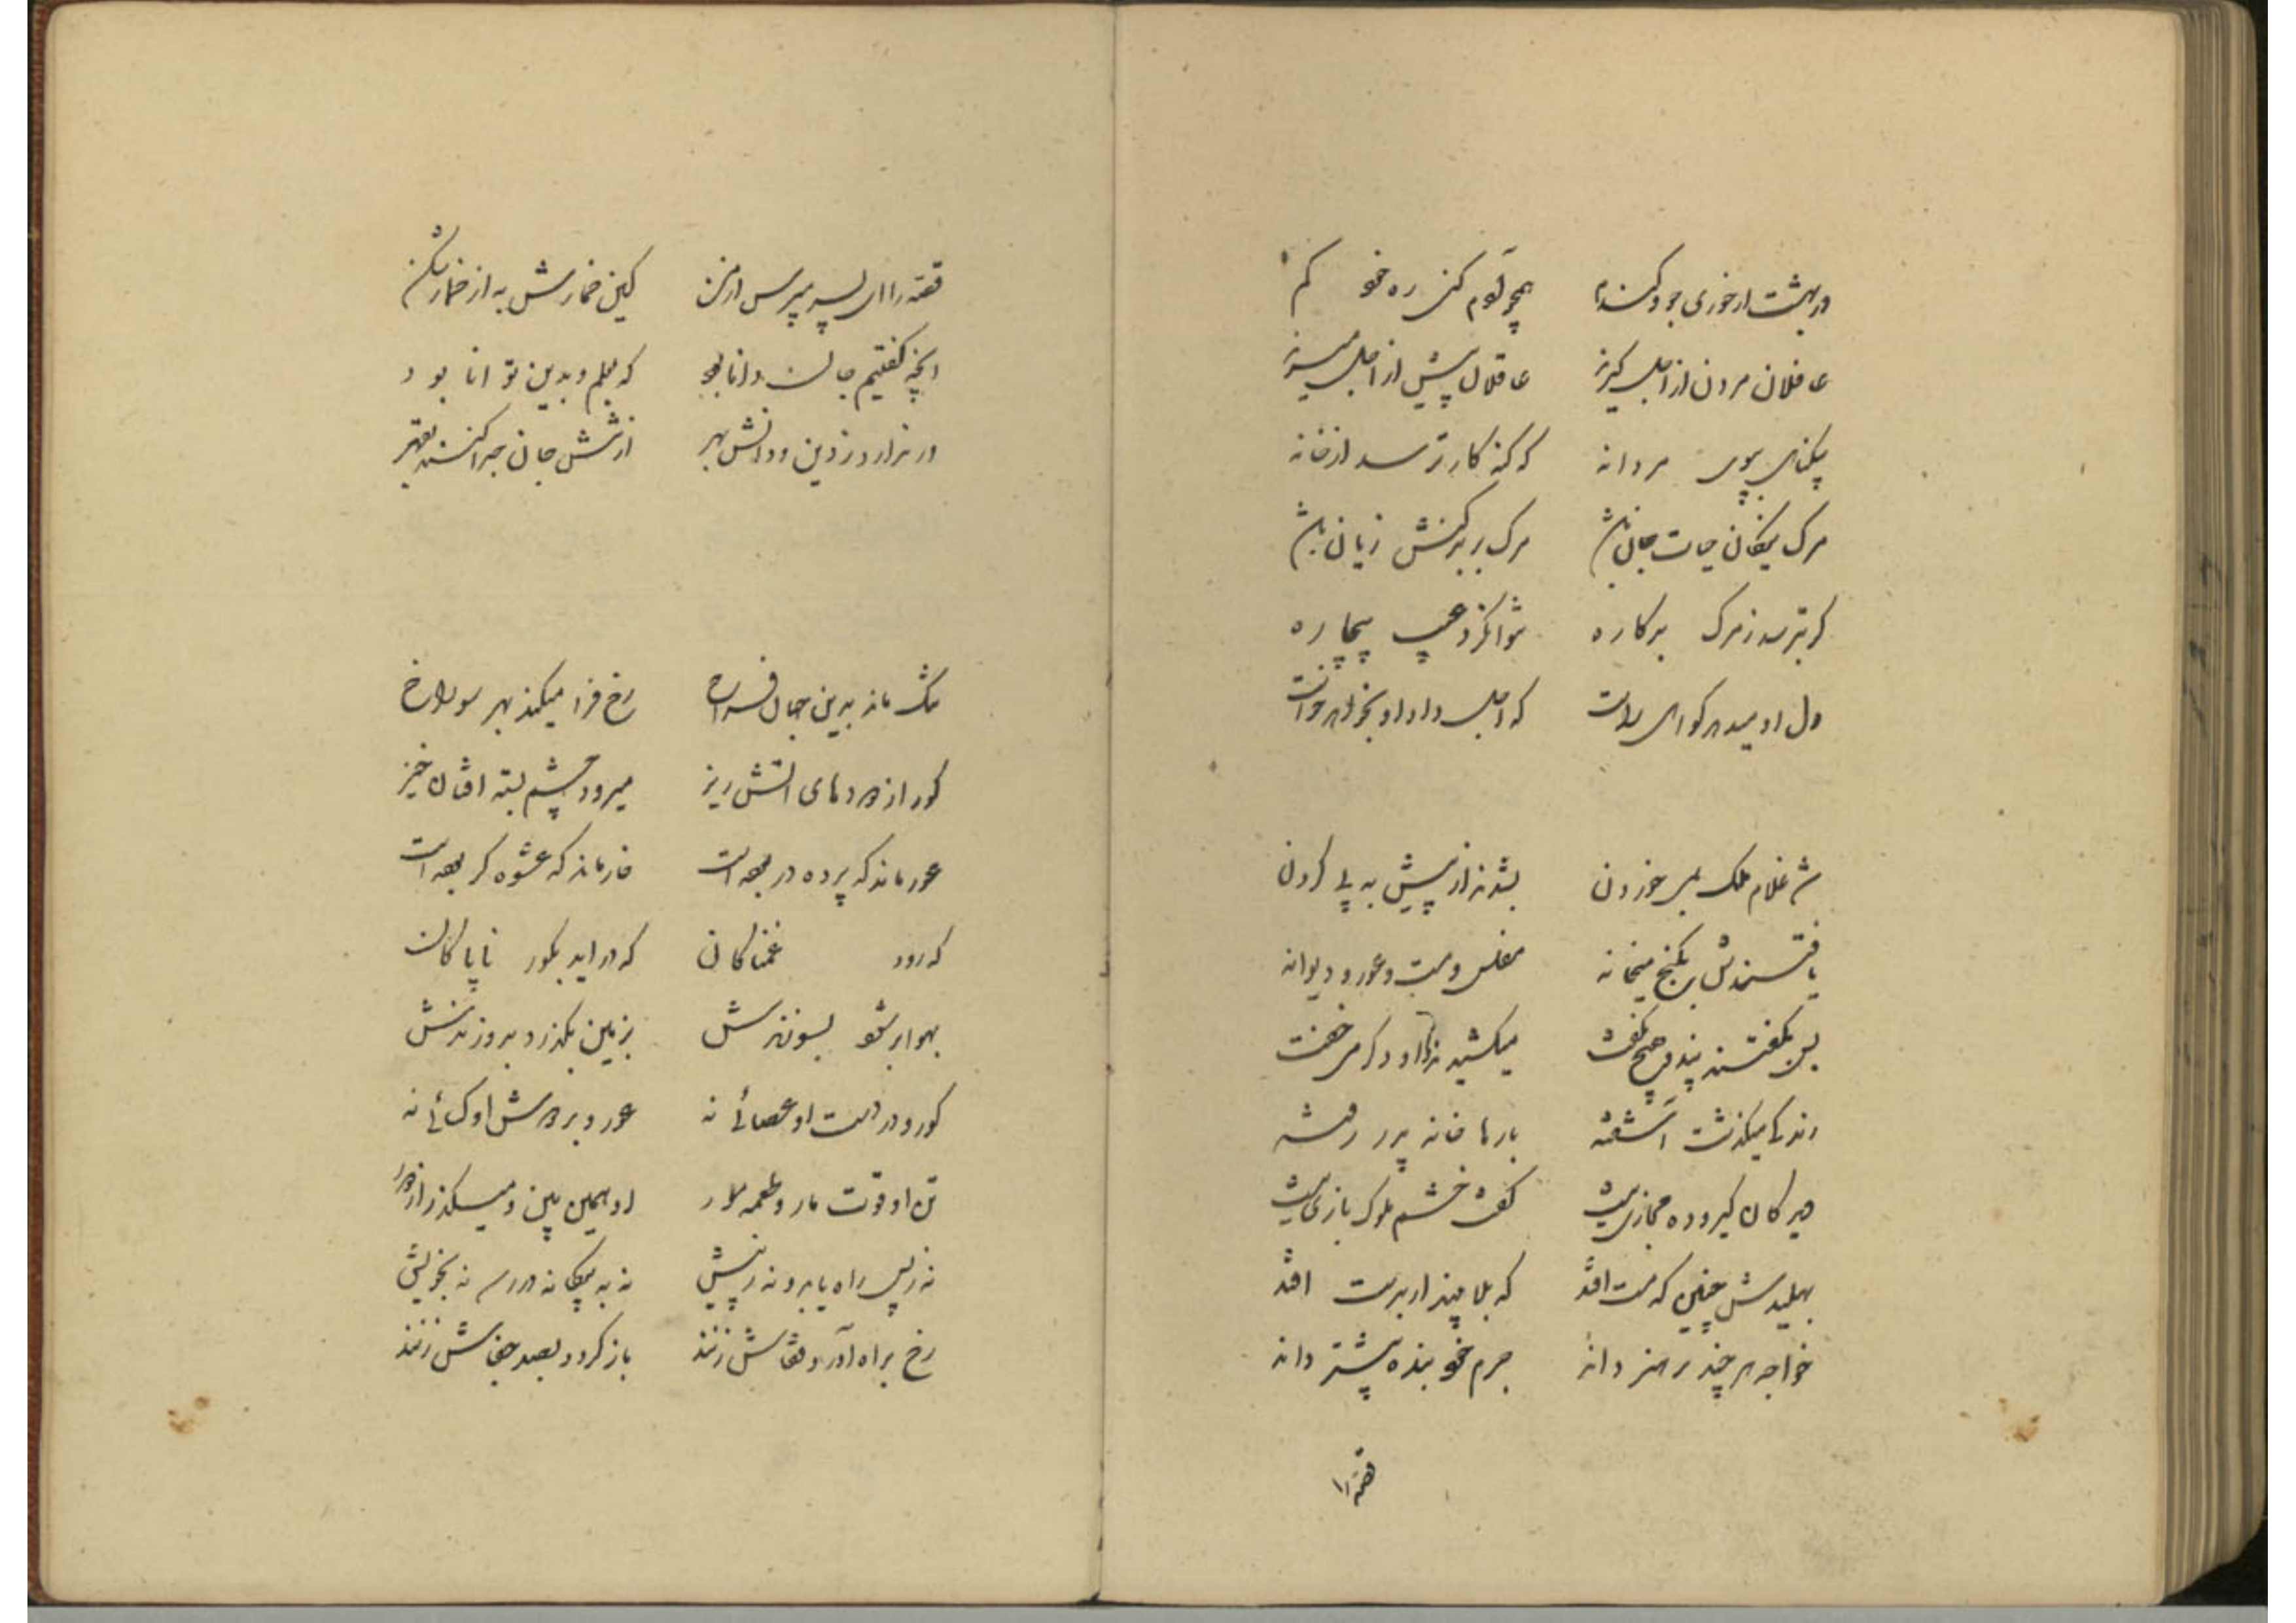 در بهشت ار خوری جو و گندم همچو آدم کنی ره خو کم
غافلان مردن از اجل گیرند عاقلان پیش از اجل میرند
مردانه که گنه کار ترسد از خانه
مرک نیکان حیات جان باشد مرک بر بدکنش زیان باشد
گر بترسد ز مرک بدکاره نتوان کرد عیب بیچاره
دل او میدهد گواهی راست که اجل داد او بخواهد خواست
شد غلام ملک بمی خوردن بشدند از پیش به پی کردن
یافتندش بکنج میخانه مفلس و مست و عور و دیوانه
پس بگفتند پند و هیچ نگفت میکشیدند او دگر می خفت
رندکی میکذشت آشفته بارها خانه پدر رفته
گفت خشم ملوک بازی نیست
بهلیدش چنین که مست افتد که بلا چند ار بدست افتد
خواجه هر چند بر هنر داند جرم خود بنده بیشتر داند
قصه را
قصه را ای پسر مپرس از من کین خمارش به از خمار شکن
انچه گفتیم جان دانا بود که بعلم و بدین توانا بود
ور ندارد ز دین و دانش بهر ازتنش جان جدا کنند بقهر
تنگ ماند بدین جهان فراخ رخ فرا میکند بهر سوراخ
کور از دردهای اتش ریز میرود چشم بسته افتان خیز
عور ماند که پرده در بوده است خار ماند که عشوه گر بوده است
که رود غمناکان که در اید بگور ناپاکان
بهوا بر شو بسوزندش بزمین بگذرد بدوزندش
کور و در دست او عصائی نه عور و بر دوش او کسائی نه
تن او قوت مار و طعمه مور او همین بین و میگذر از دور
نه ز پس راه یابد و نه ز پیش نه به بیگانه در رسد نه بخویش
رخ براه آورد قفاش زنند باز گردد بصد جفاش زنند